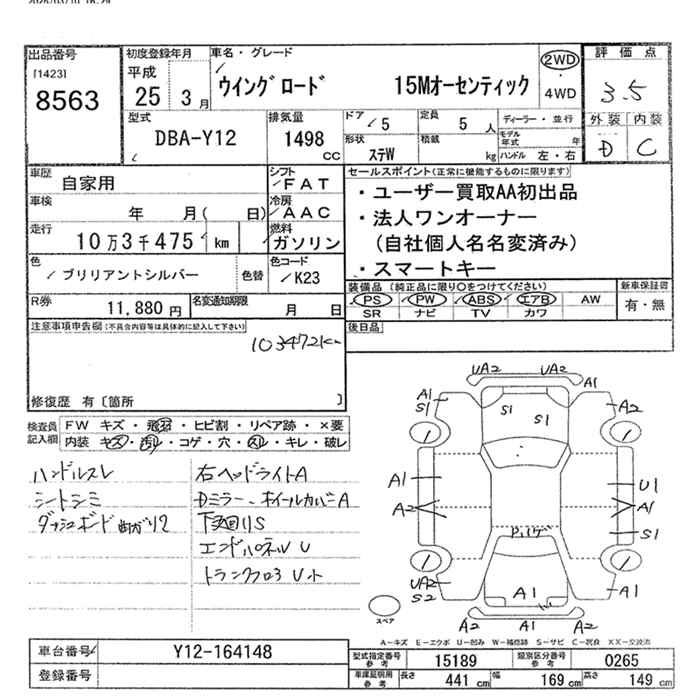 出品番号
[1423]
8563
初度登録年月
平成
25 3月
車名・グレード
ウイングロード 15Mオーセンティック
2WD
・
4WD
評価点
3.5
外装 内装
D C
型式
DBA-Y12
排気量
1498
CC
ドア 5
形状
ステW
定員 5 人
積載 kg
ディーラー・並行
モデル年式 年
ハンドル 左・右
車歴 自家用
シフト
FAT
車検 年 月( 日)
冷房
AAC
走行 10万3千475 km
燃料
ガソリン
色 ブリリアントシルバー 色替
色コード
K23
R券 11,880円
名変通知期限 月 日
セールスポイント(正常に機能するものに限ります)
・ユーザー買取AA初出品
・法人ワンオーナー
(自社個人名名変済み)
・スマートキー
装備品 (純正品に限り○をつけてください)
PS PW ABS エアB AW
SR ナビ TV カワ
新車保証書
有・無
後日品
注意事項申告欄(不具合内容等は具体的に記入して下さい)
103472km
修復歴 有〔箇所 〕
検査員記入欄
FW キズ・飛石・ヒビ割・リペア跡・×要
内装 キズ・汚れ・コゲ・穴・スレ・キレ・破レ
ハンドルスレ
シートシミ
ダッシュボード
右ヘッドライトA
Dミラー、ホイールカバーA
下回りS
エンドパネルU
トランクフロアU
UA2 UA2
A1
A1
S1
A2
S1
S1
A1
A2
U1
A1
S1
UA2
S2
A1
A1
A2 A1 A2
スペア
A-キズ E-エクボ U-凹み W-補修跡 S-サビ C-腐食 XX-交換済
車台番号 Y12-164148
登録番号
型式指定番号
参考
15189
類別区分番号
参考
0265
車庫証明用
参考
長さ 441 cm 幅 169 cm 高さ 149 cm